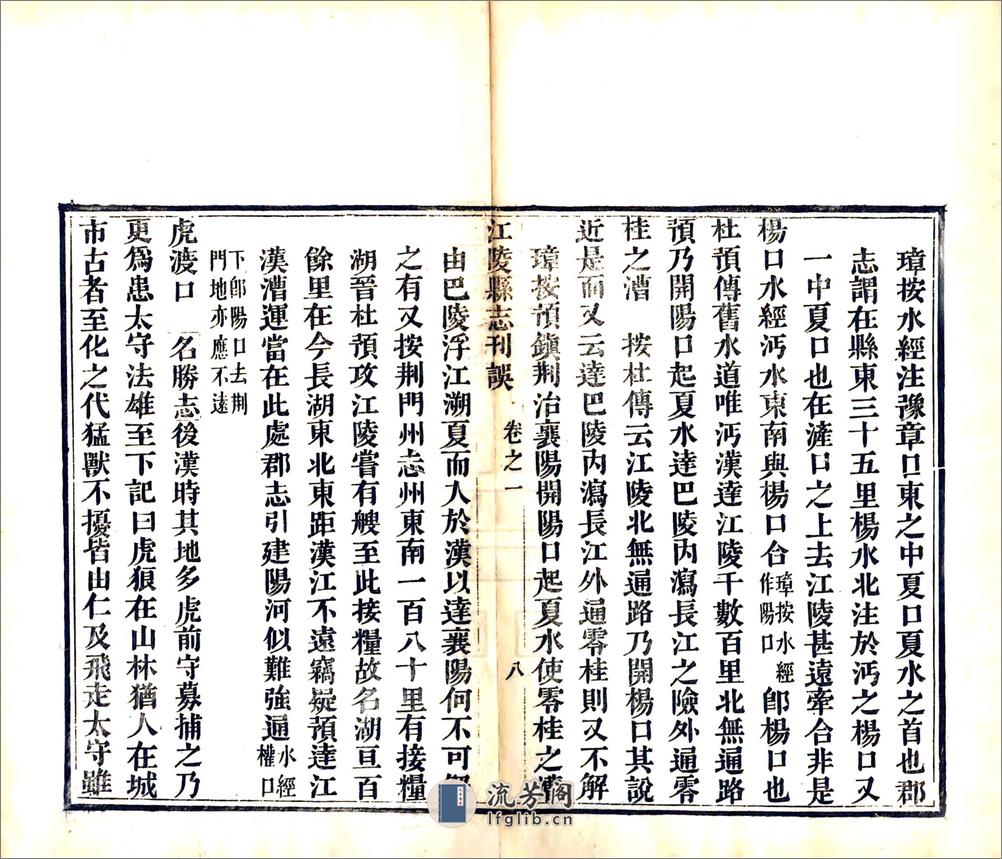 璋按水經注豫章口東之中夏口夏水之首也郡
志謂在縣東三十五里楊水北注於沔之楊口又
一中夏口也在滻口之上去江陵甚遠牽合非是
楊口水經沔水東南與楊口合璋按水經作陽口卽楊口也
杜預傳舊水道唯沔漢達江陵千數百里北無通路
預乃開陽口起夏水達巴陵內瀉長江之險外通零
桂之漕 按杜傳云江陵北無通路乃開楊口其說
近是而又云達巴陵內瀉長江外通零桂則又不解
璋按預鎮荆治襄陽開陽口起夏水使零桂之漕
江陵縣志刊誤 卷之一 八
由巴陵浮江溯夏而入於漢以達襄陽何不可解
之有又按荆門州志州東南一百八十里有接糧
湖晉杜預攻江陵嘗有艘至此接糧故名湖亘百
餘里在今長湖東北東距漢江不遠竊疑預達江
漢漕運當在此處郡志引建陽河似難強通水經權口
下卽陽口去荆門地亦應不遠
虎渡口 名勝志後漢時其地多虎前守募捕之乃
更爲患太守法雄至下記曰虎狼在山林猶人在城
市古者至化之代猛獸不擾皆由仁及飛走太守雖
流芳閣
lfglib.cn